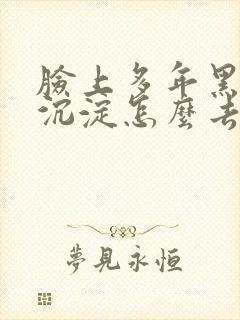 臉上多年黑
沉淀怎麼去
夢見永恒